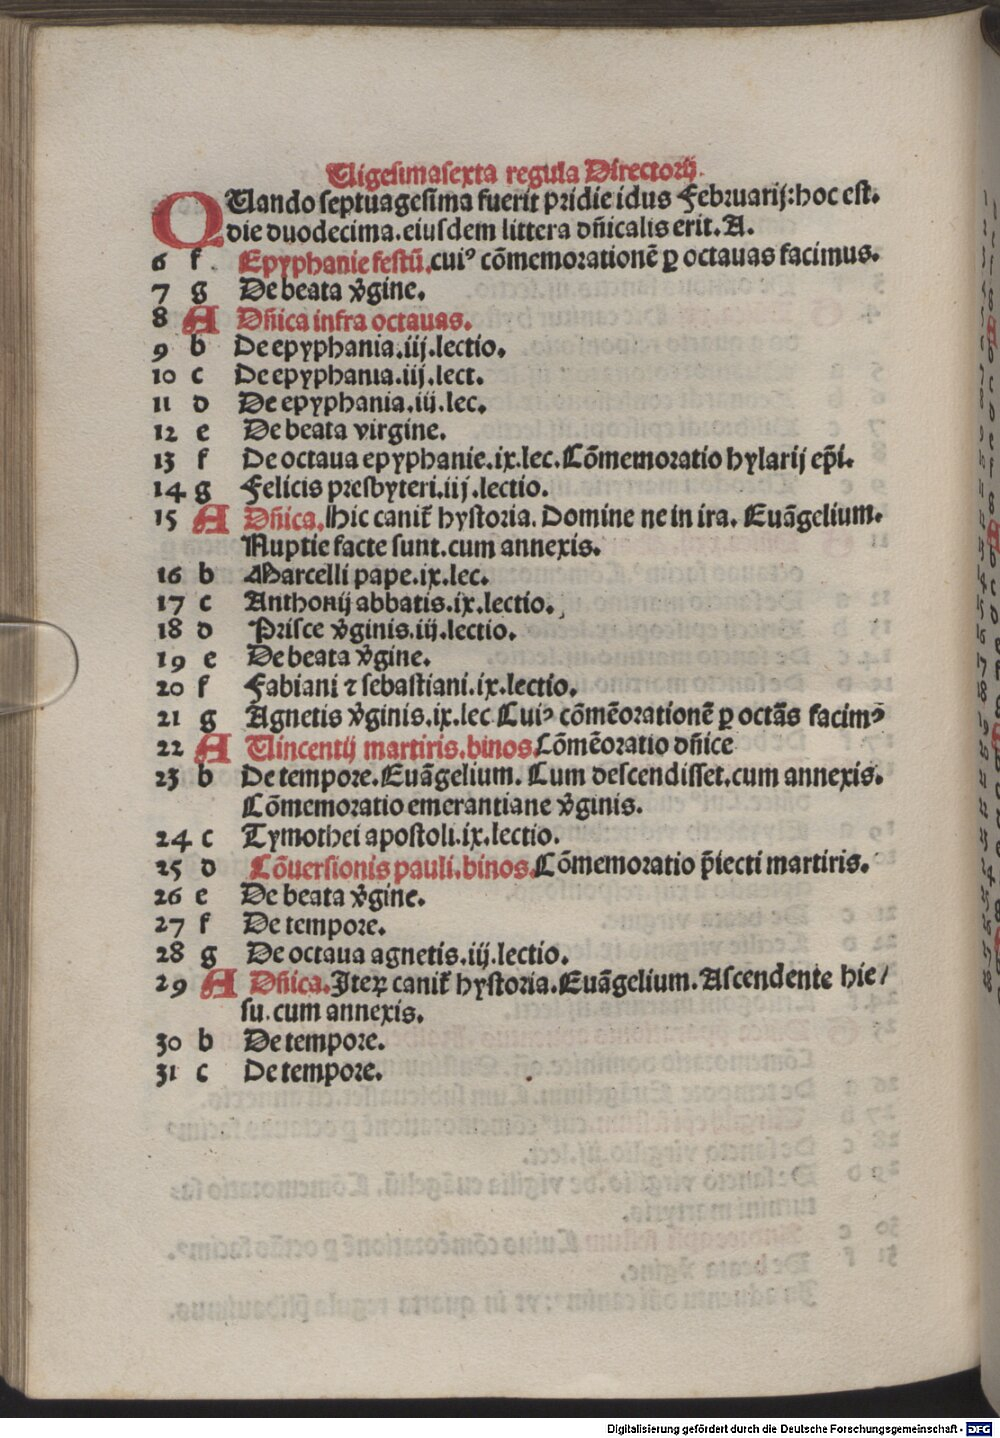 Uigesimasexta regula Directorij.
QUando septuagesima fuerit pridie idus Februarij: hoc est.
die duodecima. eiusdem littera dñicalis erit. A.
6 f Epyphanie festū. cuiꝰ cōmemorationē ꝑ octauas facimus.
7 g De beata v̄gine.
8 A Dñica infra octauas.
9 b De epyphania. iij. lectio.
10 c De epyphania. iij. lect.
11 d De epyphania. iij. lec.
12 e De beata virgine.
13 f De octaua epyphanie. ix. lec. Cōmemoratio hylarij ep̄i.
14 g Felicis presbyteri. iij. lectio.
15 A Dñica. Hic canit̄ hystoria. Domine ne in ira. Euāgelium.
Nuptie facte sunt. cum annexis.
16 b Marcelli pape. ix. lec.
17 c Anthonij abbatis. ix. lectio.
18 d Prisce v̄ginis. iij. lectio.
19 e De beata v̄gine.
20 f Fabiani ⁊ sebastiani. ix. lectio.
21 g Agnetis v̄ginis. ix. lec Cuiꝰ cōmēorationē ꝑ octās facimꝰ
22 A Uincentij martiris. binos. Cōmēoratio dñice
23 b De tempore. Euāgelium. Cum descendisset. cum annexis.
Cōmemoratio emerantiane v̄ginis.
24 c Tymothei apostoli. ix. lectio.
25 d Cōuersionis pauli. binos. Cōmemoratio p̄iecti martiris.
26 e De beata v̄gine.
27 f De tempore.
28 g De octaua agnetis. iij. lectio.
29 A Dñica. Iteꝝ canit̄ hystoria. Euāgelium. Ascendente hie/
su. cum annexis.
30 b De tempore.
31 c De tempore.
Digitalisierung gefördert durch die Deutsche Forschungsgemeinschaft - DFG